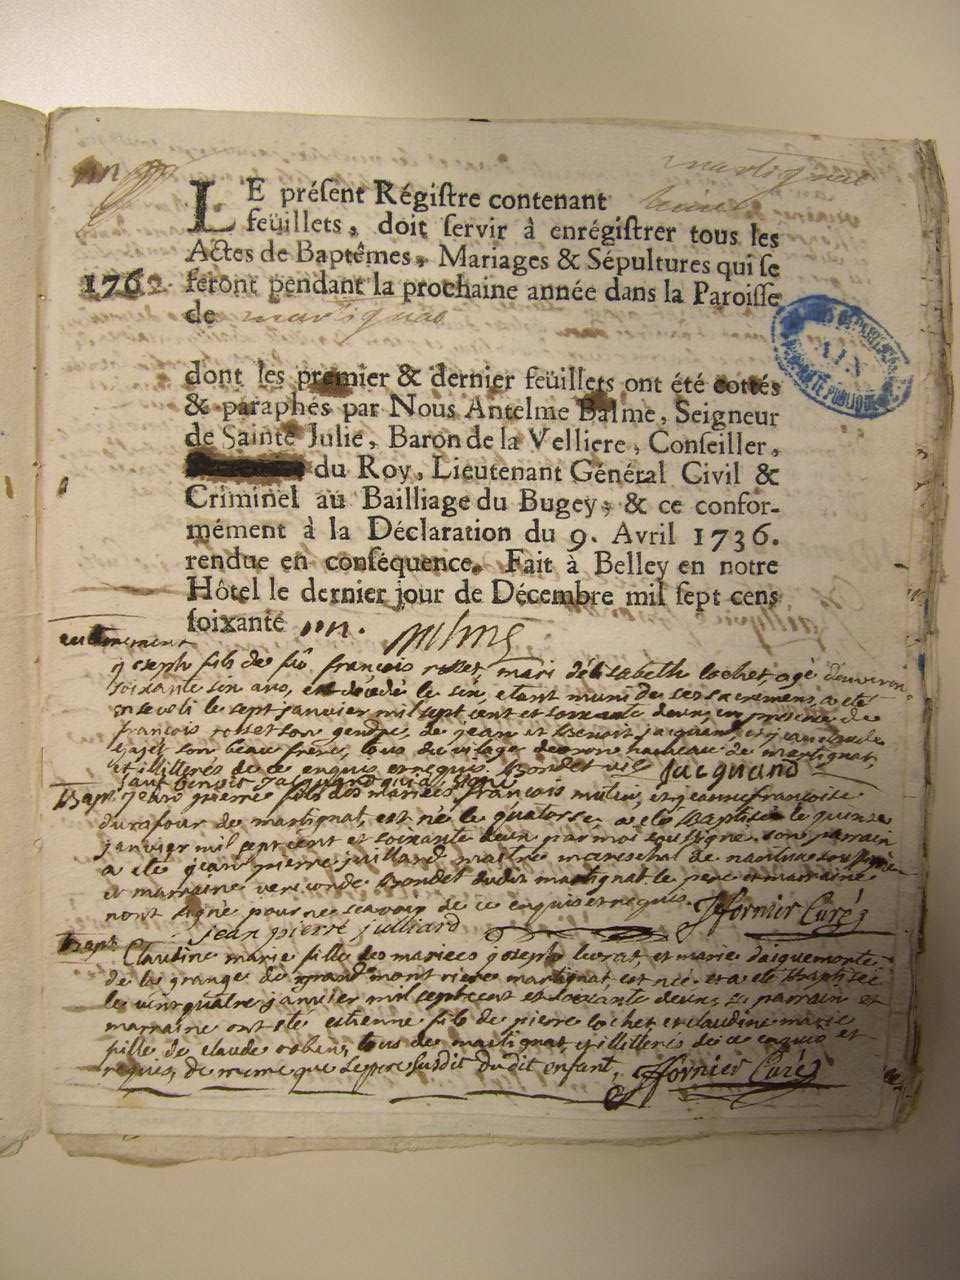 martignat
LE présent Régistre contenant
feüillets, doit servir à enrégistrer tous les
Actes de Baptêmes, Mariages & Sépultures qui se
1762. feront pendant la prochaine année dans la Paroisse
de martignat
dont les premier & dernier feüillets ont été cottés
& paraphés par Nous Antelme Balme, Seigneur
de Sainte Julie, Baron de la Velliere, Conseiller,
du Roy, Lieutenant Général Civil &
Criminel au Bailliage du Bugey, & ce confor-
mément à la Déclaration du 9. Avril 1736.
rendue en conséquence. Fait à Belley en notre
Hôtel le dernier jour de Décembre mil sept cens
soixante un.
AIN
enterrement
joseph fils de françois rosset, mari delisabeth lochet agé denviron
soixante ans, est décédé le six, etant muni de ses sacremens, a eté
enseveli le sept janvier mil sept cent et soixante deux, en presence de
françois rosset son gendre, de jean et benoit jacquand, et jean claude
son beau frere, tous du village hameau de martignat,
et illiterés de ce enquis et requis
sauf benoit jacquand qui a signé Jacquand
Bapt. jean pierre fils des mariés françois et jeanne françoise
durafour de martignat, est né le quatorse a eté Baptisé le quinse
janvier mil sept cent et soixante deux par moi soussigné. son parrain
a eté jean pierre juillard maitre mareschal de nantua soussigné
et marraine Bondet dudit martignat le pere et marraine
nont signé pour ne scavoir de ce enquis et requis. fornier Curé
jean pierre juilliard
Bapt. Claudine marie fille des mariés joseph et marie daiguemorte
de la grange de grand mont riere martignat, est née et a eté Baptisée
le vint quatre janvier mil sept cent et soixante deux, le parrain et
marraine ont eté etienne fils de pierre lochet et claudine marie
fille de claude tous de martignat, et illiterés de ce enquis et
requis, de meme que le pere susdit dudit enfant, fornier Curé